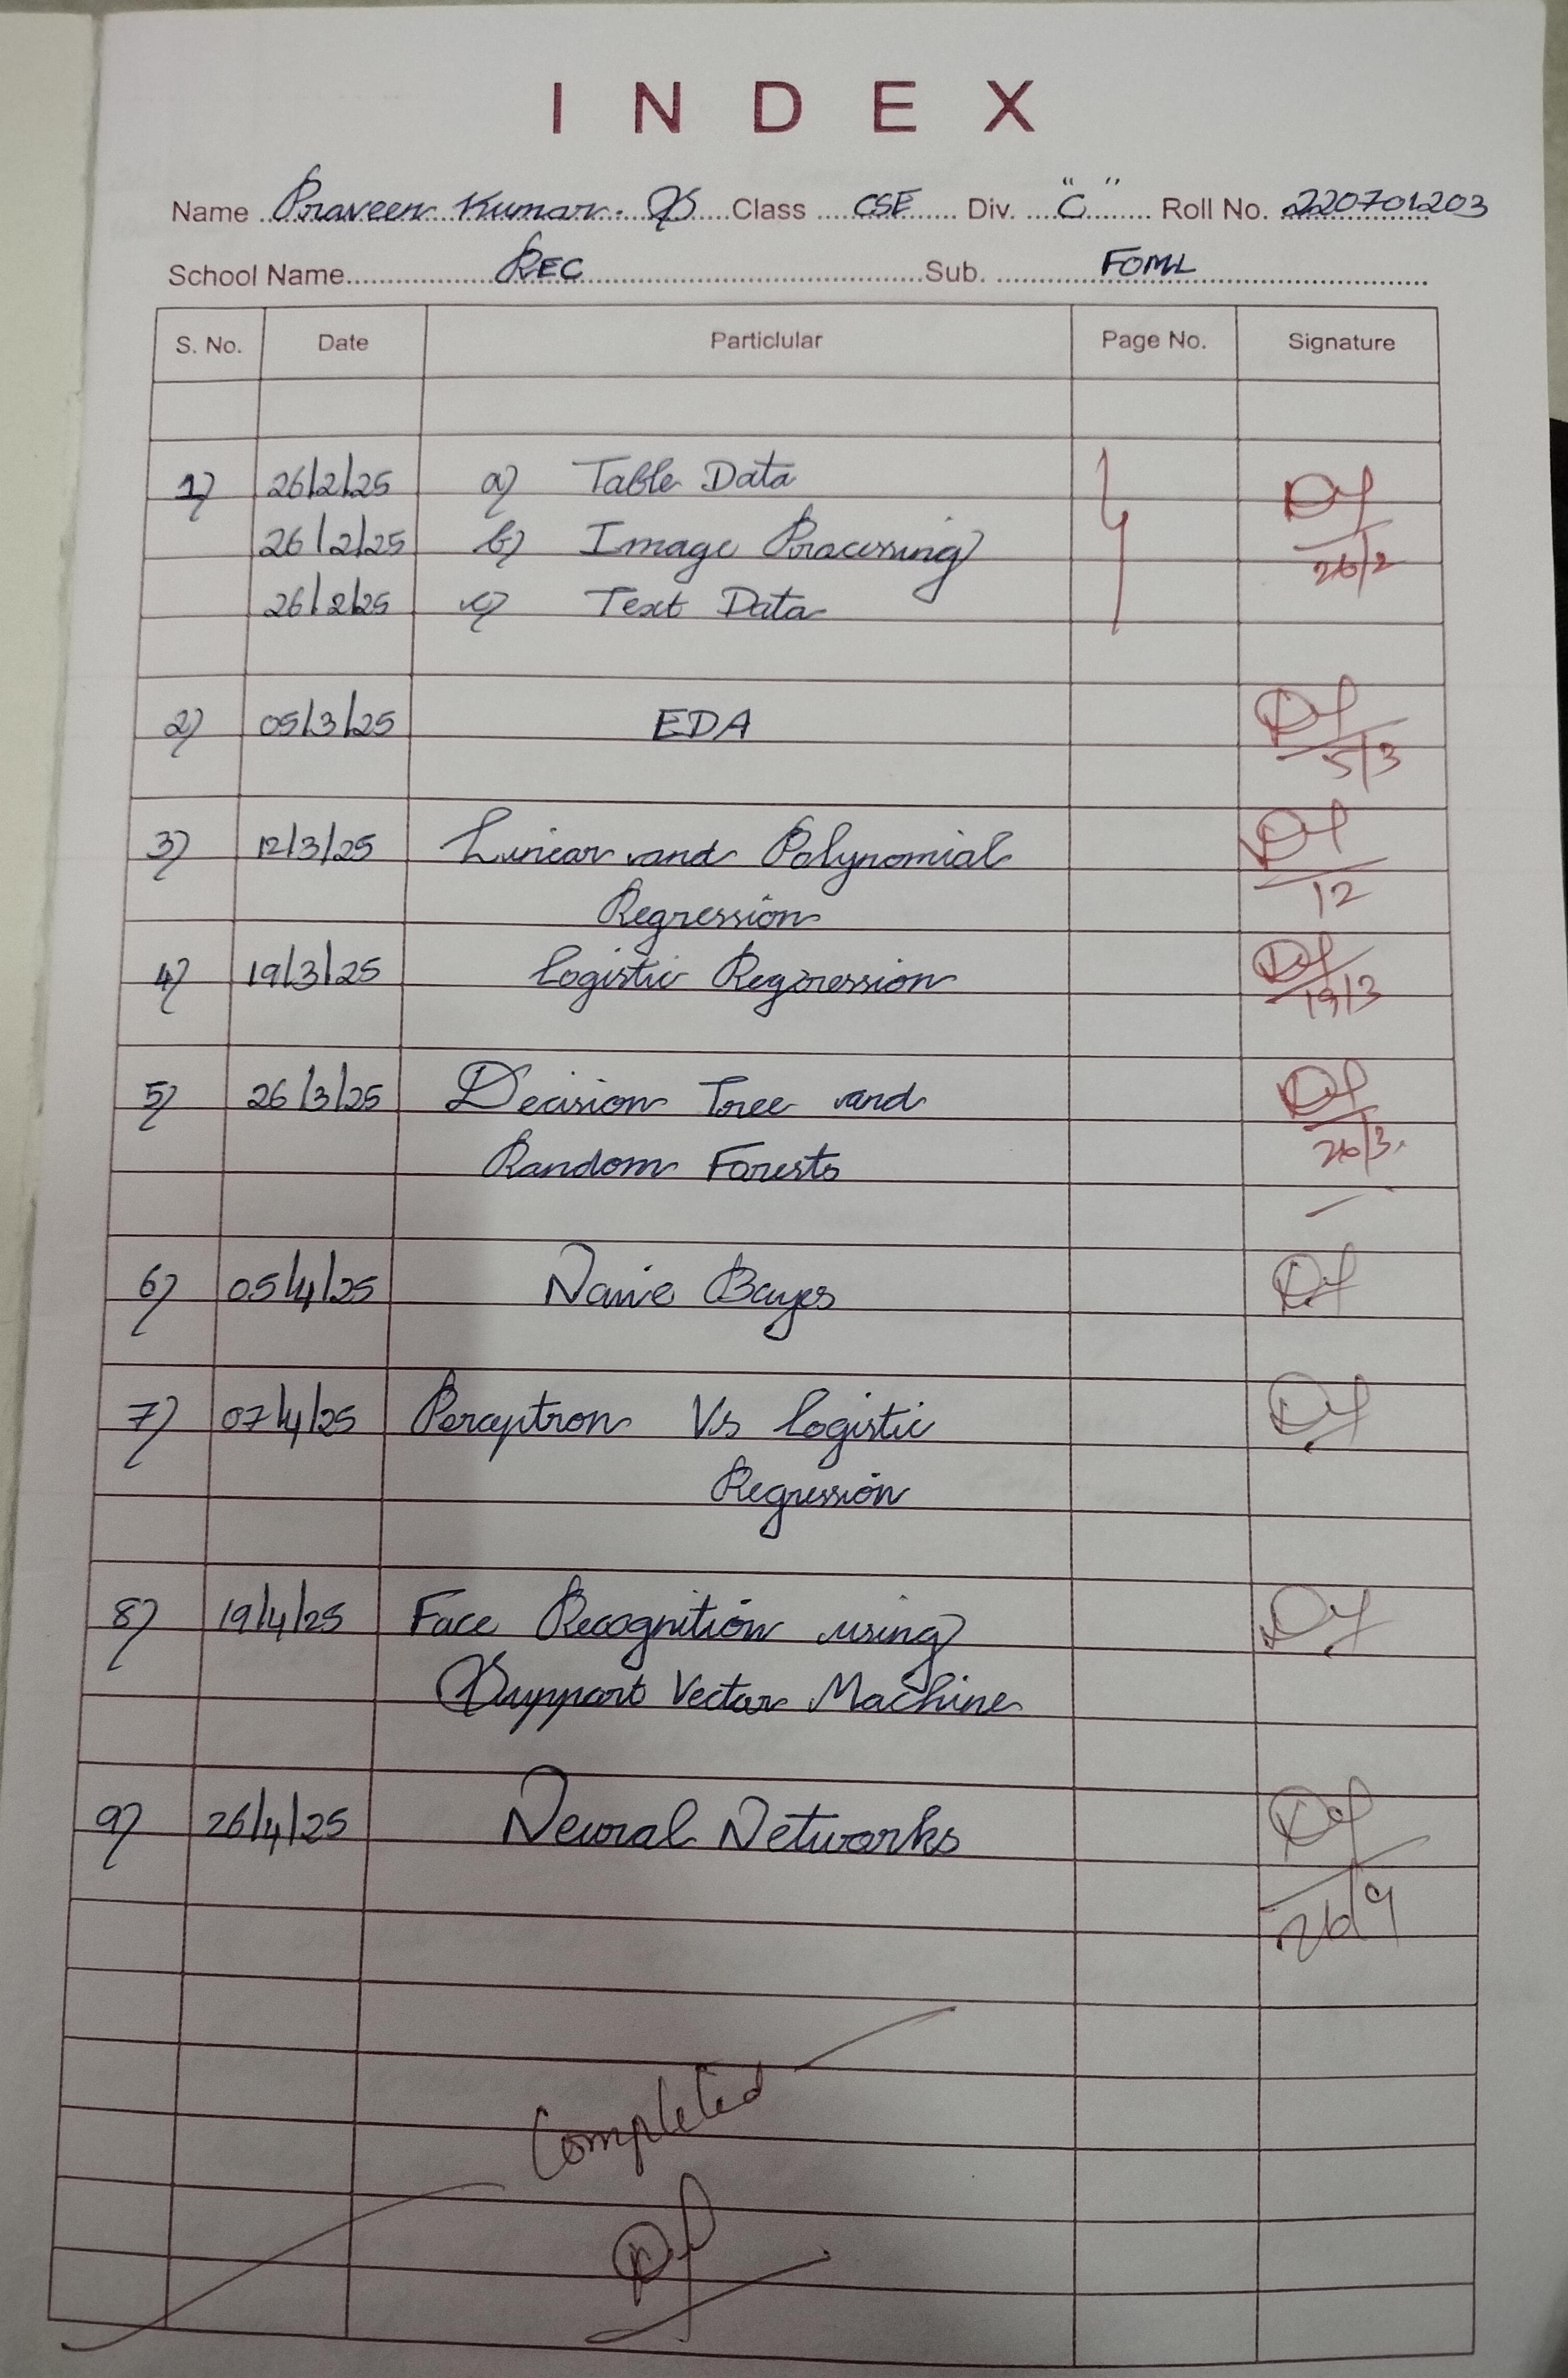 INDEX
Name Praveen Kumar. S Class CSE Div. "C" Roll No. 220701203
School Name REC Sub. FOML
S. No. Date Particlular Page No. Signature
1) 26/2/25 a) Table Data
26/2/25 b) Image Processing 26/2
26/2/25 c) Text Data
2) 05/3/25 EDA
5/3
3) 12/3/25 Linear and Polynomial
Regression 12
4) 19/3/25 Logistic Regression 19/3
5) 26/3/25 Decision Tree and
Random Forests 26/3.
6) 05/4/25 Naive Bayes
7) 07/4/25 Perceptron Vs Logistic
Regression
8) 19/4/25 Face Recognition using
Support Vector Machine
9) 26/4/25 Neural Networks
Completed